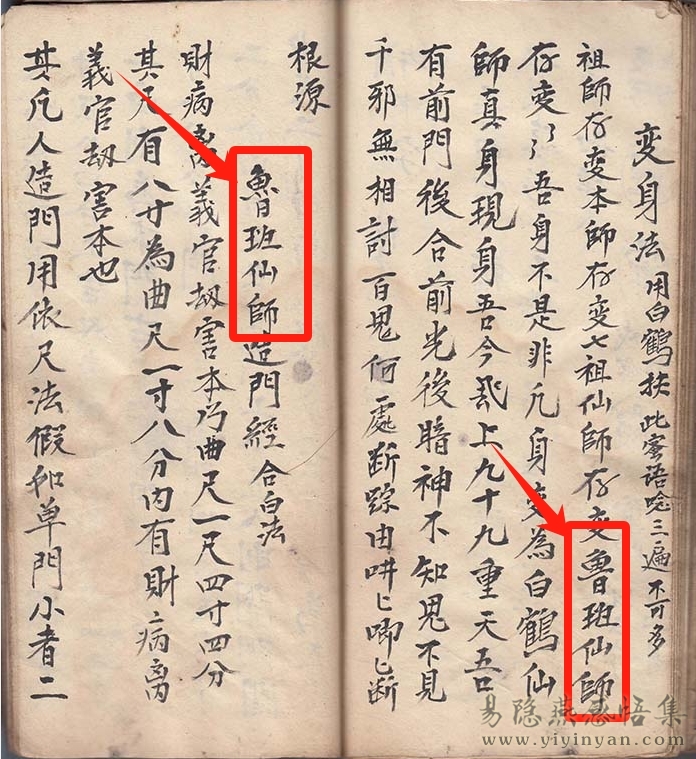 变身法 用白鶴扶此蜜語唸三遍不可多
祖師存变本師存变七祖仙師存变魯班仙師
存变了了吾身不是非凢身变為白鶴仙
師真身現身吾今飛上九十九重天吾
有前門後合前光後暗神不知鬼不見
千邪無相討百鬼何處断踪由吽匕唧匕断
根源
魯班仙師造門經 合白法
財病離義官刼害本乃曲尺一尺四寸四分
其尺有八寸為曲尺一寸八分内有財病离
義官刼害本也
其凢人造門用依尺法假如单門小者二
易隐燕感悟集
www.yiyinyan.com